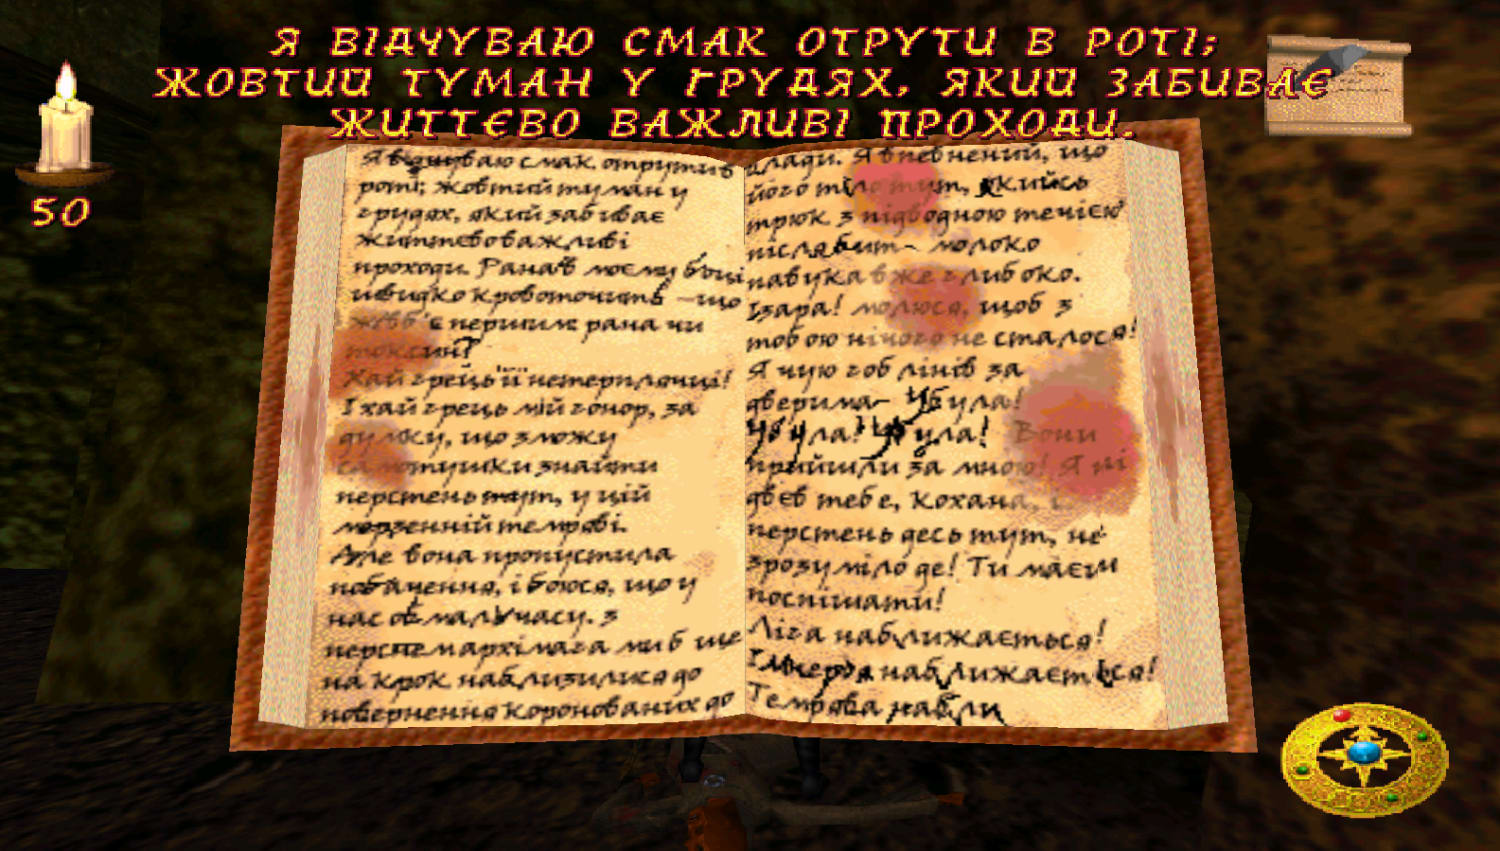 Я ВІДЧУВАЮ СМАК ОТРУТИ В РОТІ;
ЖОВТИЙ ТУМАН У ГРУДЯХ, ЯКИЙ ЗАБИВАЄ
ЖИТТЄВО ВАЖЛИВІ ПРОХОДИ.
50
Я відчуваю смак отрути в
роті; жовтий туман у
грудях, який забиває
життєво важливі
проходи. Рана в моєму боці
швидко кровоточить – що
уб'є першим рана чи
токсин?
Хай грець її нетерплячці!
І хай грець мій гонор, за
думку, що зможу
самотушки знайти
перстень тут, у цій
мерзенній темряві.
Але вона пропустила
побачення, і боюся, що у
нас обмаль часу. З
перстем архімага ми б ще
на крок наблизилися до
повернення Коронованих до
влади. Я впевнений, що
його тіло тут, якийсь
трюк з підводною течією
після битв – молоко
павука вже глибоко.
Ізара! молюся, щоб з
тобою нічого не сталося!
Я чую гоблінів за
дверима – Убула!
Убула! Убула! Вони
прийшли за мною! Я підвів
тебе, Кохана, і
перстень десь тут, не
зрозуміло де! Ти маєш
поспішати!
Ліга наближається!
Імперія наближається!
Темрява набли